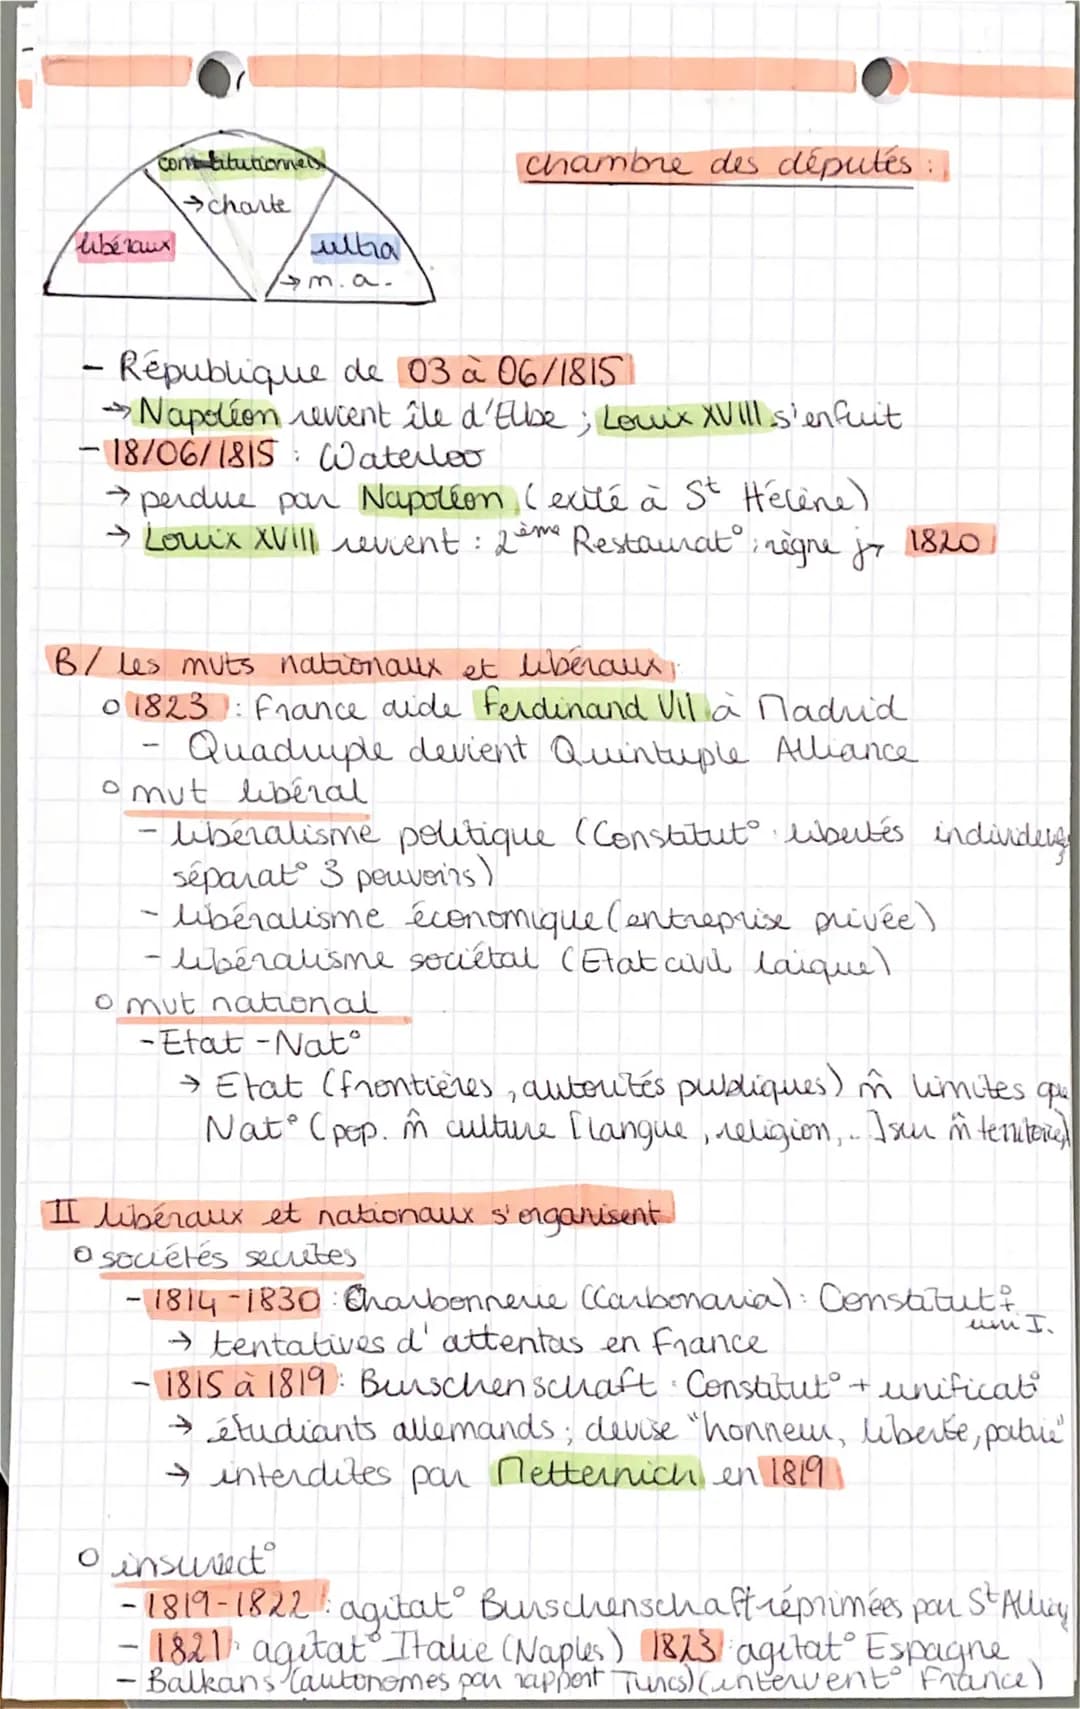 constitutionnels
→ charte
libéraux
ultra
→ m.a.
chambre des députés :
- République de 03 à 06/1815
→ Napoléon revient île d'Elbe ; Louix XVIII s'enfuit
- 18/06/1815 : Waterloo
→ perdue par Napoléon (exilé à St Hélène)
→ Louix XVIII revient : 2ème Restaurat° ; règne jq 1820
B/ les mvts nationaux et libéraux
o 1823 : France aide Ferdinand VII à Madrid
- Quadruple devient Quintuple Alliance
o mvt libéral
- libéralisme politique (Constitut° libertés individuelles
séparat° 3 pouvoirs)
- libéralisme économique (entreprise privée)
- libéralisme sociétal (Etat civil laïque)
o mvt national
- Etat-Nat°
→ Etat (frontières, autorités publiques) m̂ limites que
Nat° (pop. m̂ culture [langue, religion,..] sur m̂ territoire)
II libéraux et nationaux s'organisent
o sociétés secrètes
- 1814-1830 : Charbonnerie (Carbonaria) : Constitut° +
uni I.
→ tentatives d'attentas en France
- 1815 à 1819 : Burschenschaft : Constitut° + unificat°
→ étudiants allemands ; devise "honneur, liberté, patrie"
→ interdites par Metternich en 1819
o insurrect°
- 1819-1822 : agitat° Burschenschaft réprimées par St Alliance
- 1821 : agitat° Italie (Naples) 1823 : agitat° Espagne
- Balkans (autonomes par rapport Turcs) (intervent° France)